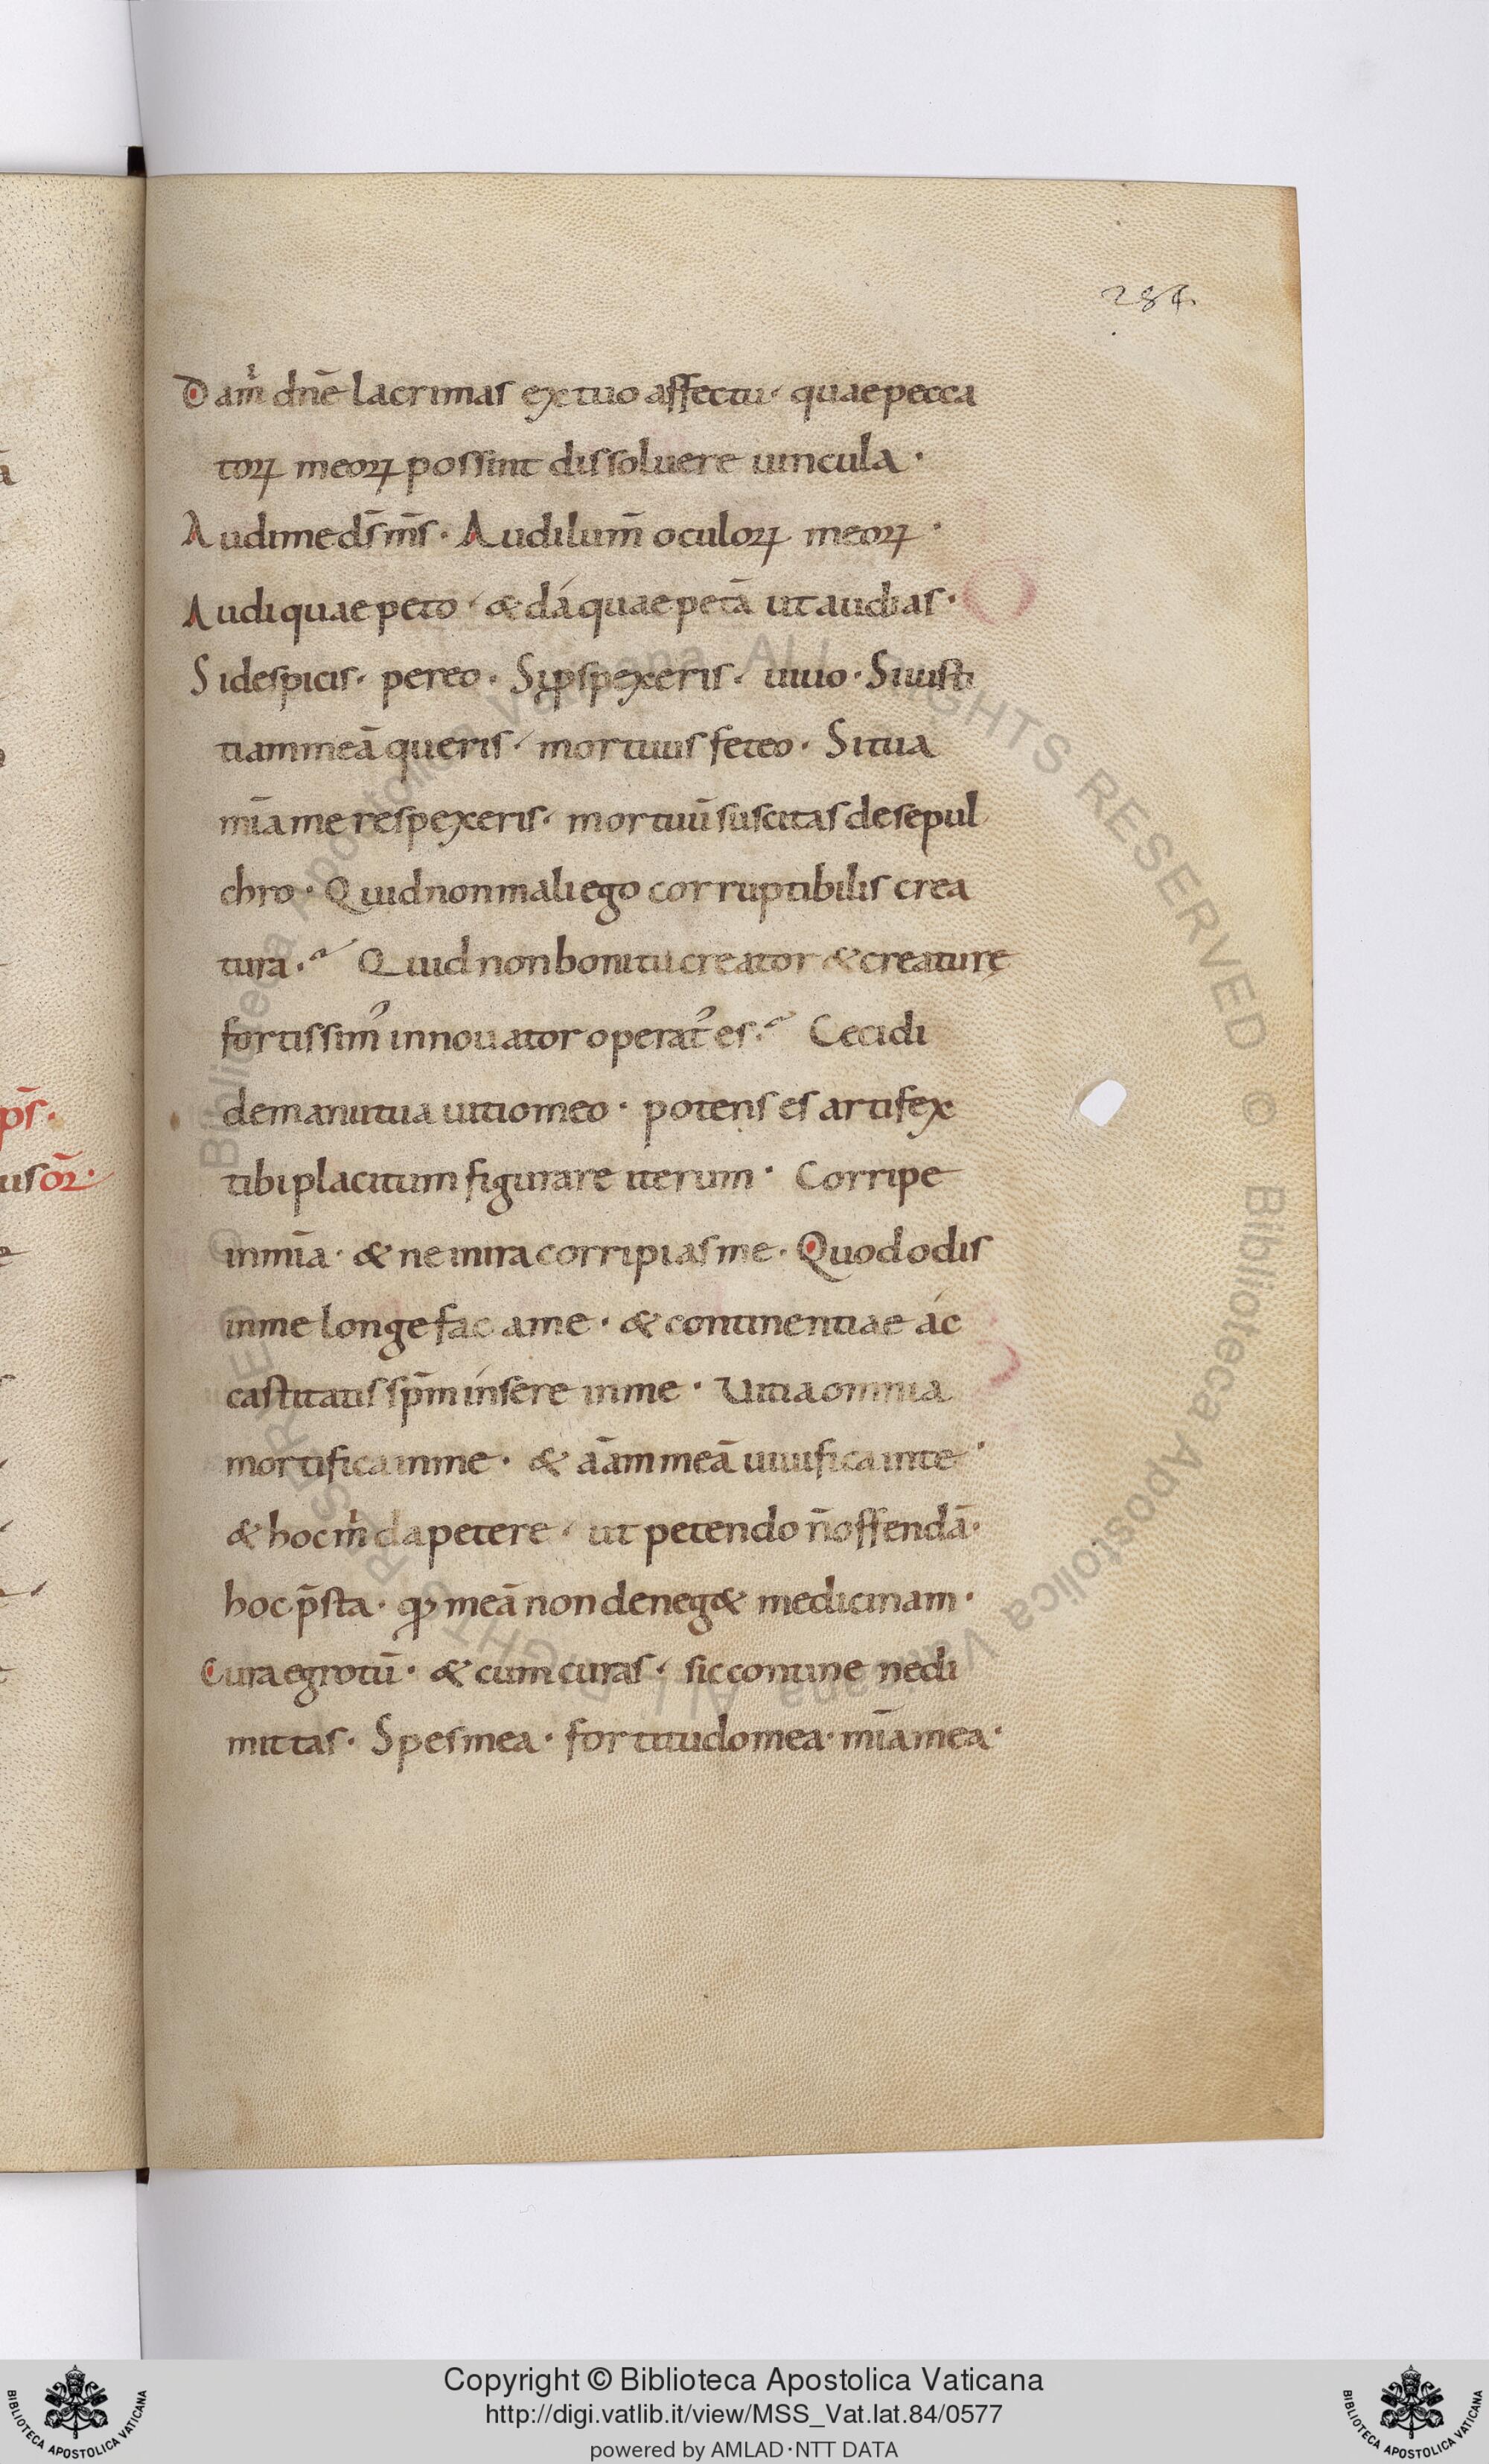 284.
Da m̅ dn̅e lacrimas ex tuo affectu· quae pecca
toꝝ meoꝝ possint dissoluere uincula·
Audi me ds̅ ms̅· Audi lum̅ oculoꝝ meoꝝ·
Audi quae peto· & dá quae petā ut audias·
Si despicis· pereo· Si
uiuo· Si iusti
tiam meā queris· mortuus feteo· Si tua
mīa me respexeris· mortuū suscitas de sepul
chro· Quid non mali ego corruptibilis crea
tura·? Quid non boni tu creator & creaturę
fortissim' innouator operat' es·? Cecidi
de manu tua uitio meo· potens es artifex
tibi placitum figurare iterum· Corripe
in mīa· & ne in ira corripias me· Quod odis
in me longe fac a me· & continentiae ác
castitatis sp̅m ínsere in me· Uitia omnia
mortifica in me· & ā̄am meā uiuifica in te·
& hoc m̅ da petere· ut petendo n̅ offendā·
hoc p̅sta· qđ meā non deneg& medicinam·
Cura egrotū· & cum curas· sic contine ne di
mittas· Spes mea· fortitudo mea· mīa mea·
ps̅·
us or̅·
Copyright © Biblioteca Apostolica Vaticana
http://digi.vatlib.it/view/MSS_Vat.lat.84/0577
powered by AMLAD·NTT DATA
BIBLIOTECA APOSTOLICA VATICANA
BIBLIOTECA APOSTOLICA VATICANA
© Biblioteca Apostolica Vaticana ALL RIGHTS RESERVED
© Biblioteca Apostolica Vaticana ALL RIGHTS RESERVED